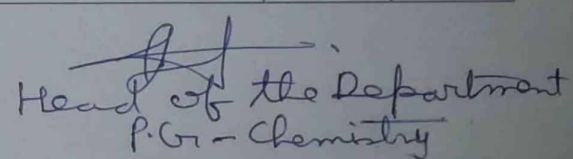 Head of the Department
P.G - Chemistry